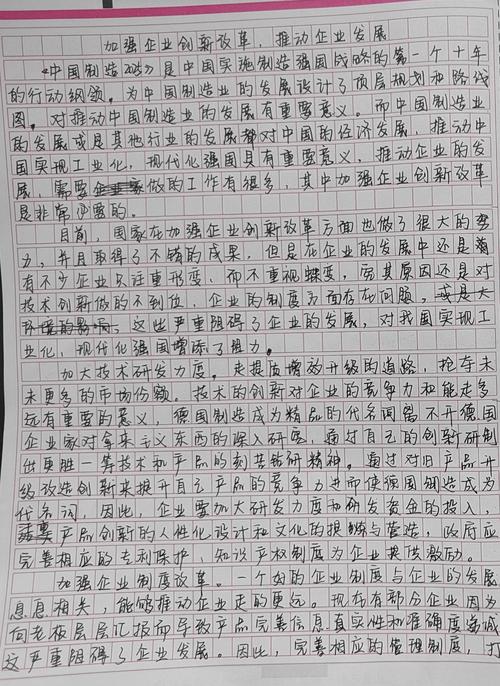 加强企业创新改革，推动企业发展
《中国制造2025》是中国实施制造强国战略的第一个十年
的行动纲领。为中国制造业的发展设计了顶层规划和路线
图。对推动中国制造业的发展有重要意义。而中国制造业
的发展或是其他行业的发展都对中国的经济发展，推动中
国实现工业化，现代化强国具有重要意义，推动企业的发
展，需要做的工作有很多，其中加强企业创新改革
是非常必要的。
目前，国家在加强企业创新改革方面也做了很大的努
力，并且取得了不错的成果，但是在企业的发展中还是
有不少企业只注重形变，而不重视蝶变，究其原因还是对
技术创新做的不到位，企业的制度方面存在问题，或是大
环境的影响，这些严重阻碍了企业的发展，对我国实现工
业化，现代化强国增添了阻力。
加大技术研发力度。走提质增效升级的道路，抢夺未
来更多的市场份额。技术的创新对企业的竞争力和能走多
远有重要的意义，德国制造成为精品的代名词离不开德国
企业家对拿来主义东西的深入研究，通过自己的创新研制
出更胜一筹技术和产品的刻苦钻研精神。通过对旧产品升
级改造创新来提升自己产品的竞争力进而使德国制造成为
代名词，因此，企业要加大研发力度和研发资金的投入，
产品创新的人性化设计和文化的提炼与营造，政府应
完善相应的专利保护，知识产权制度为企业提供激励。
加强企业制度改革。一个好的企业制度与企业的发展
息息相关，能够推动企业走的更远。现在有部分企业因为
向老板层层汇报而导致产品完善信息真实性和准确度递减
这严重阻碍了企业发展。因此，完善相应的管理制度，打